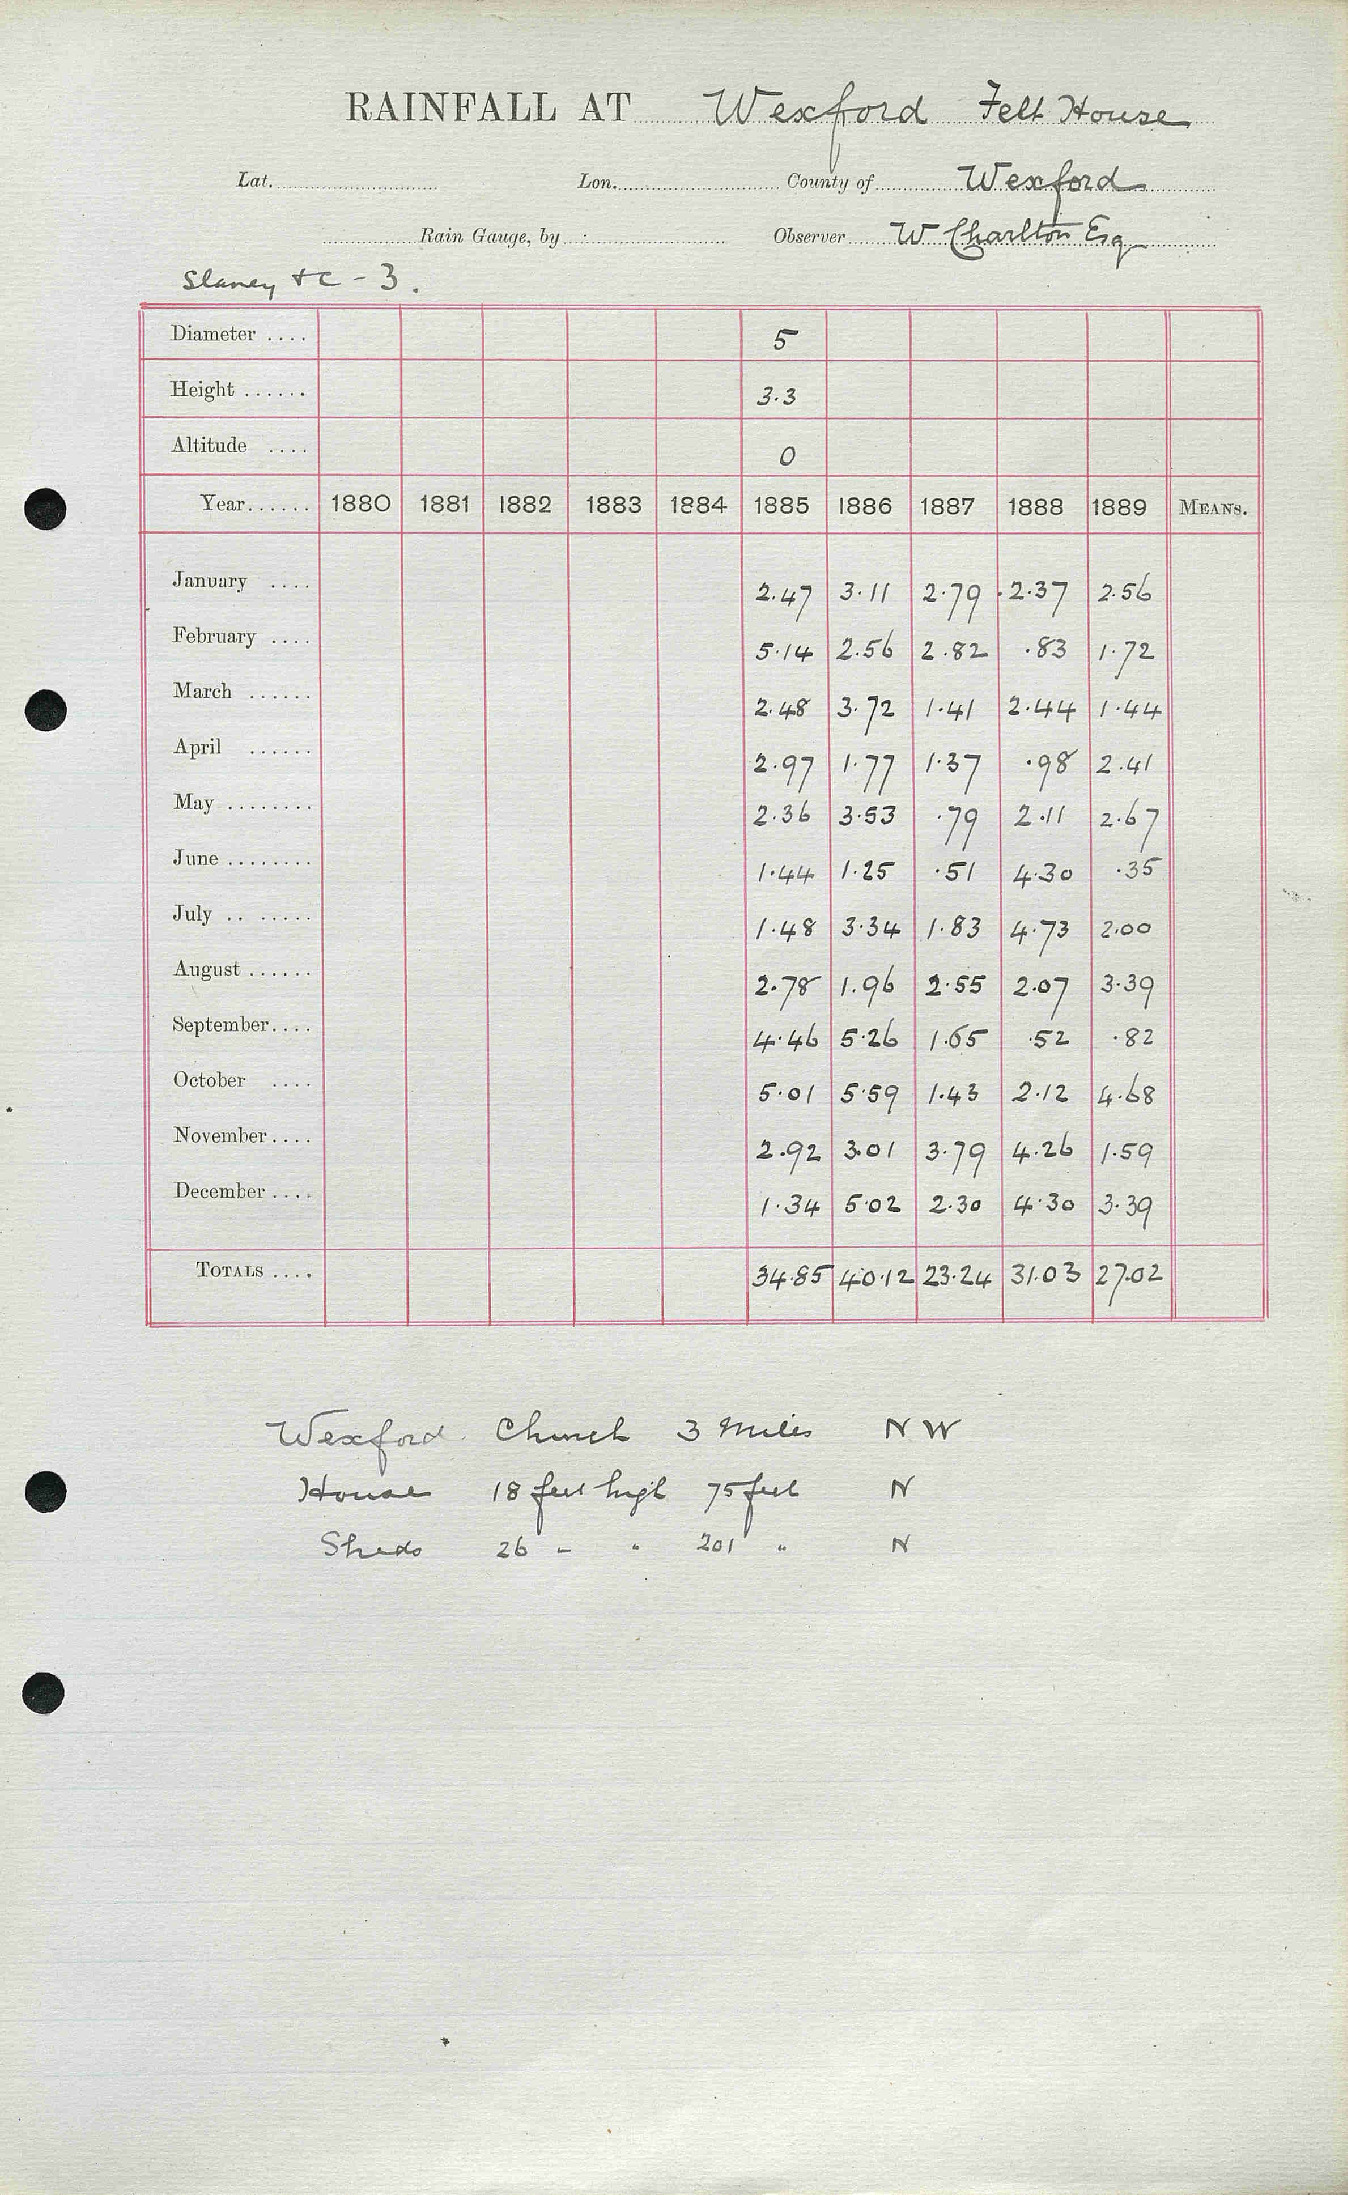 RAINFALL AT Wexford Felt House
Lat. Lon. County of Wexford
Rain Gauge, by Observer W Charlton Esq
Slaney &c - 3.
Diameter .... 5
Height ...... 3.3
Altitude .... 0
Year...... 1880 1881 1882 1883 1884 1885 1886 1887 1888 1889 MEANS.
January .... 2.47 3.11 2.79 2.37 2.56
February .... 5.14 2.56 2.82 .83 1.72
March ...... 2.48 3.72 1.41 2.44 1.44
April ...... 2.97 1.77 1.37 .98 2.41
May ........ 2.36 3.53 .79 2.11 2.67
June ........ 1.44 1.25 .51 4.30 .35
July .. ..... 1.48 3.34 1.83 4.73 2.00
August ...... 2.78 1.96 2.55 2.07 3.39
September.... 4.46 5.26 1.65 .52 .82
October .... 5.01 5.59 1.43 2.12 4.68
November.... 2.92 3.01 3.79 4.26 1.59
December .... 1.34 5.02 2.30 4.30 3.39
TOTALS .... 34.85 40.12 23.24 31.03 27.02
Wexford Church 3 Miles N W
House 18 feet high 75 feet N
Sheds 26 " " 201 " N